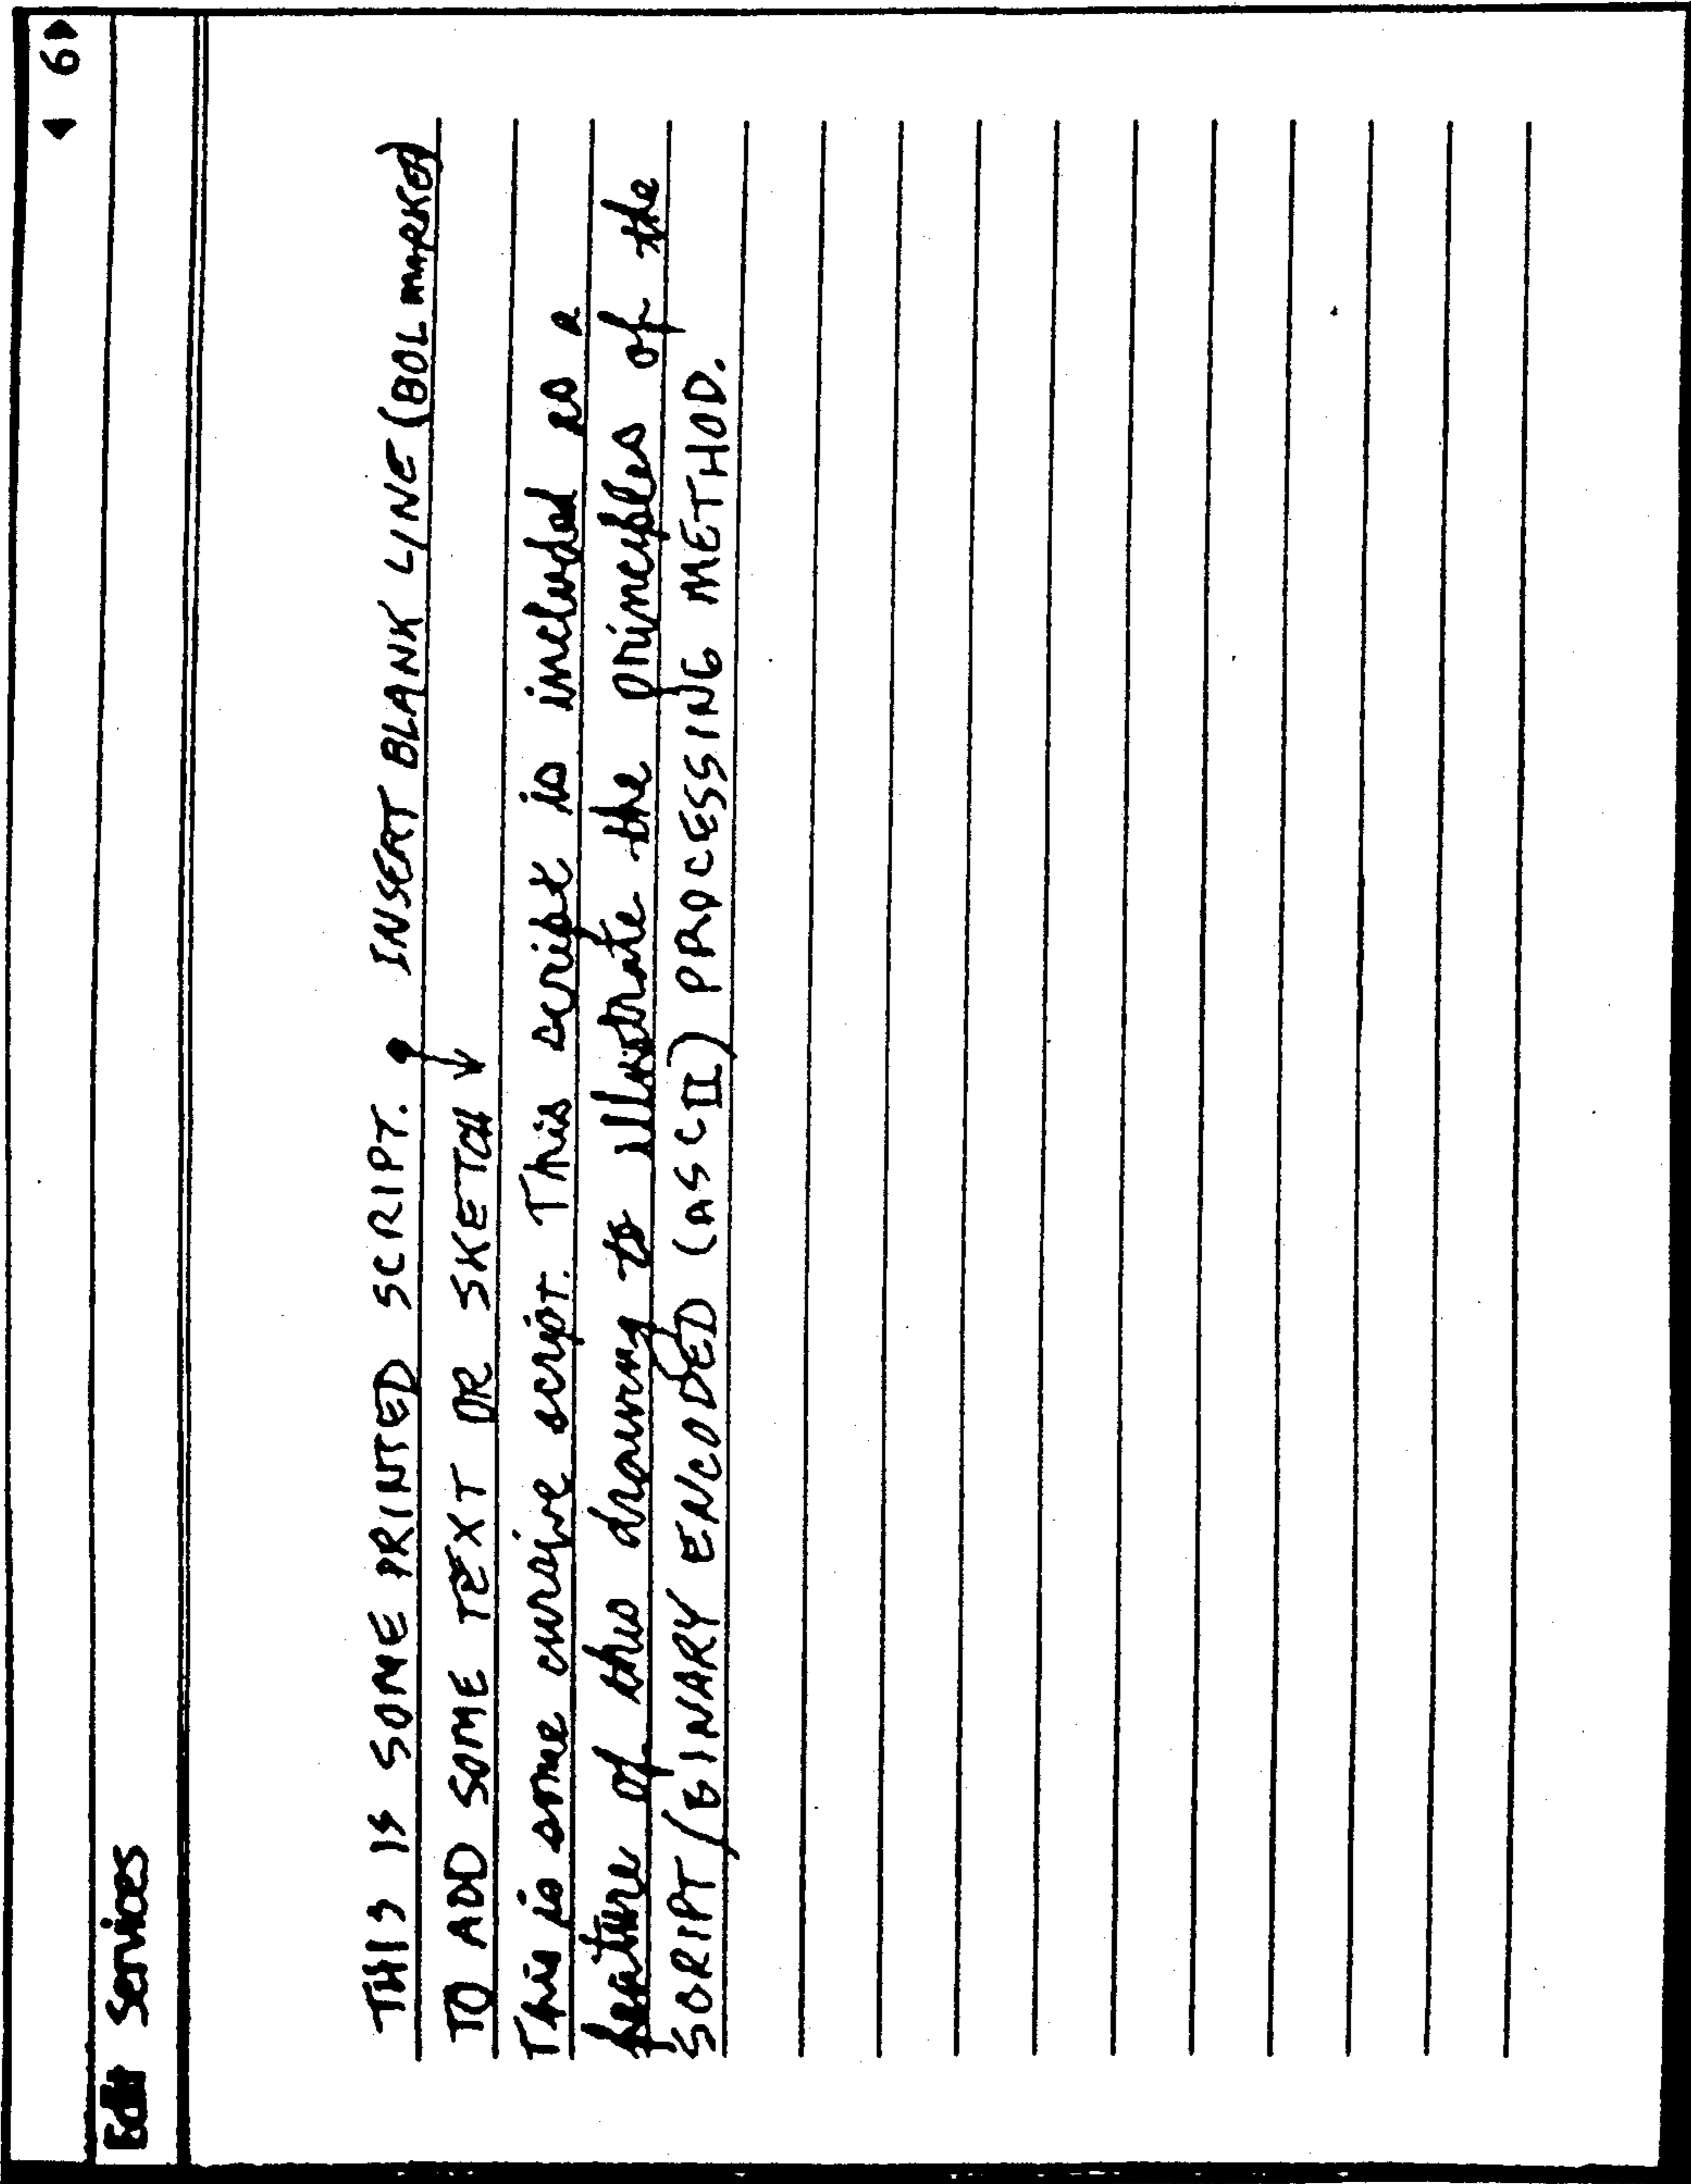 ◀ 6▶
Edit Services
THIS IS SOME PRINTED SCRIPT. INSERT BLANK LINE (BOL MARKED)
TO ADD SOME TEXT OR SKETCH
This is some cursive script. This script is included as a
feature of this drawing to illustrate the principles of the
SCRIPT/BINARY ENCODED (ASCII) PROCESSING METHOD.